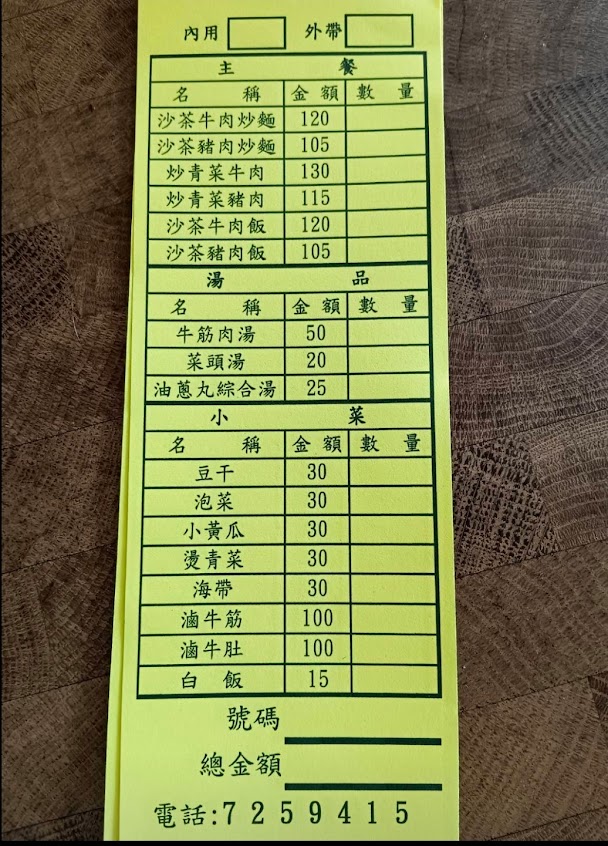 內用 外帶
主 餐
名 稱 金 額 數 量
沙茶牛肉炒麵 120
沙茶豬肉炒麵 105
炒青菜牛肉 130
炒青菜豬肉 115
沙茶牛肉飯 120
沙茶豬肉飯 105
湯 品
名 稱 金 額 數 量
牛筋肉湯 50
菜頭湯 20
油蔥丸綜合湯 25
小 菜
名 稱 金 額 數 量
豆干 30
泡菜 30
小黃瓜 30
燙青菜 30
海帶 30
滷牛筋 100
滷牛肚 100
白 飯 15
號碼
總金額
電話:7259415